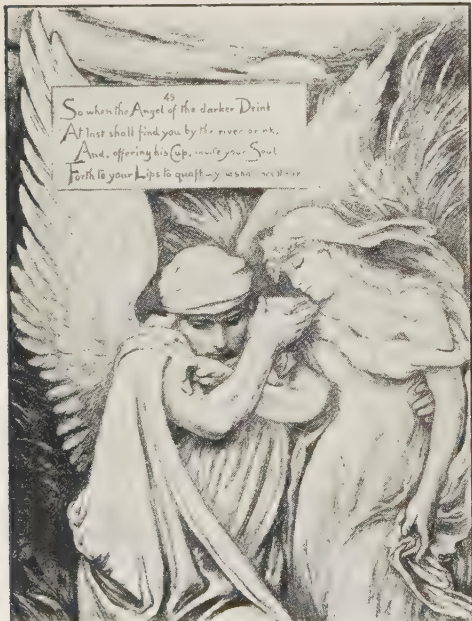 49
So when the Angel of the darker Drink
At last shall find you by the river brink,
And, offering his Cup, invite your Soul
Forth to your Lips to quaff